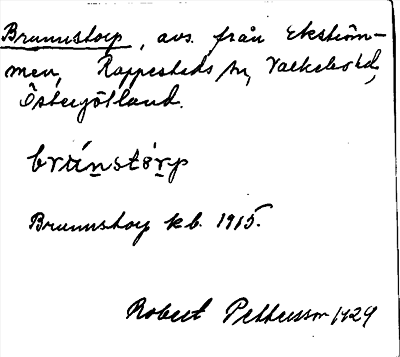 Brunnstorp, avs. från Ekström-
men, Rappestads sn, Valkebo hd,
Östergötland.
brúnstòrp
Brunnstorp kb. 1915.
Robert Pettersson 1929